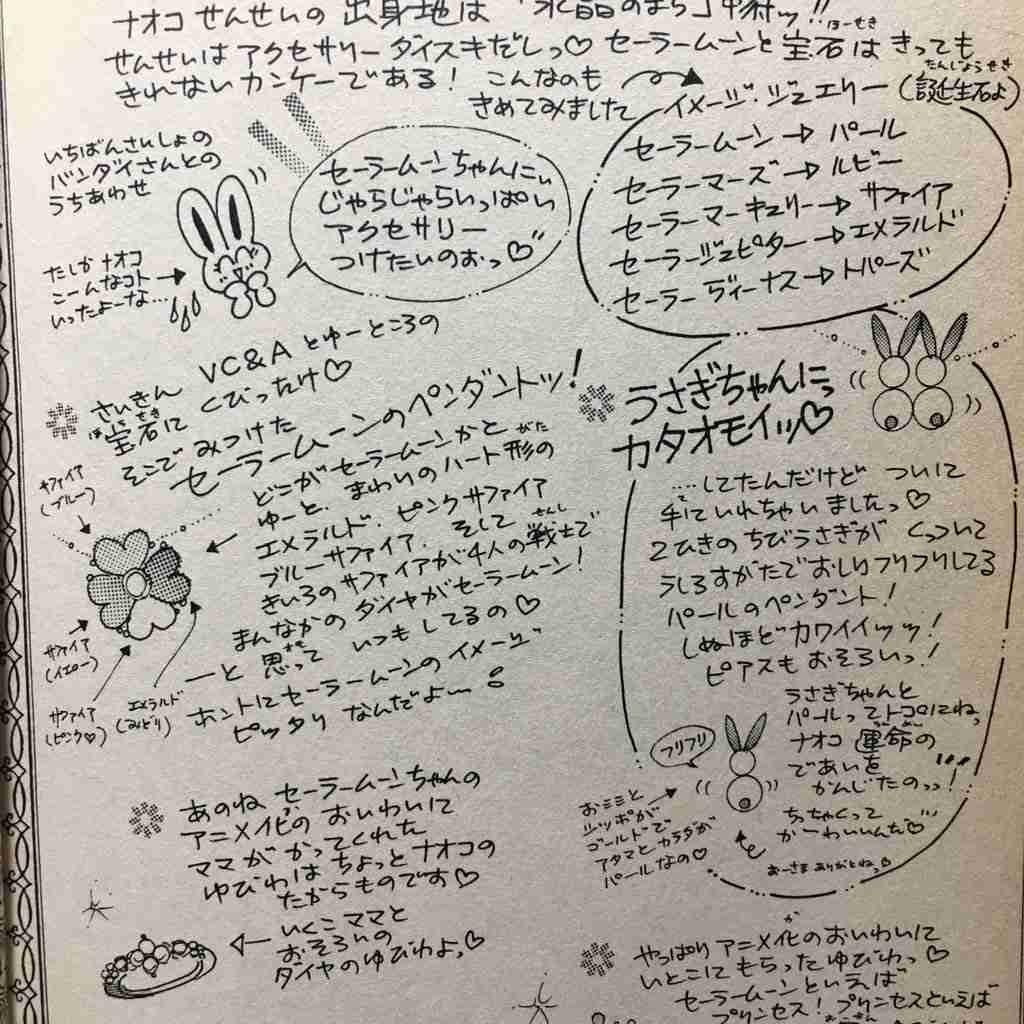 ナオコ せんせいの 出身地は 「水晶のまち」甲府ッ!!
せんせいは アクセサリー ダイスキだしっ♡ セーラームーンと 宝石は きっても
ほーせき
きれない カンケーで ある! こんなのも
きめてみました
イメージ・ジュエリー (誕生石よ)
たんじょうせき
セーラームーン → パール
セーラーマーズ → ルビー
セーラーマーキュリー → サファイア
セーラージュピター → エメラルド
セーラーヴィーナス → トパーズ
いちばんさいしょの
バンダイさんとの
うちあわせ
セーラームーンちゃんにぃ
じゃらじゃらいっぱい
アクセサリー
つけたいのぉっ♡
たしか ナオコ
こーんなコト
いったよーな…
さいきん VC&A とゆーところの
宝石に くびったけ♡
ほうせき
そこで みつけた
セーラームーンのペンダントッ!
どこがセーラームーンかと
ゆーと、まわりのハート形の
がた
エメラルド、ピンクサファイア
ブルーサファイア、そして
きいろのサファイアが4人の戦士で
せんし
まんなかの ダイヤがセーラームーン!
—と 思って いつも してるの♡
おも
ホントにセーラームーンのイメージ
ピッタリ なんだよー
サファイア
(ブルー)
サファイア
(イエロー)
サファイア
(ピンク♡)
エメラルド
(みどり)
うさぎちゃんにっ
カタオモイッ♡
…してたんだけど ついに
手にいれちゃいましたっ♡
て
2ひきの ちびうさぎが くっついて
うしろすがたで おしりフリフリしてる
パールのペンダント!
しぬほど カワイイッッ!
ピアスも おそろいっ!
うさぎちゃんと
パールってトコにねっ
ナオコ 運命の
うんめい
であいを
かんじたのっっ!
フリフリ
おミミと
シッポが
ゴールドで
アタマと カラダが
パールなの♡
ちっちゃくって
かーわいいんだ♡
おーさま ありがとねっ
あのね セーラームーンちゃんの
アニメ化の おいわいに
ママが かってくれた
ゆびわは ちょっとナオコの
たからものです♡
いくこママと
おそろいの
ダイヤのゆびわよっ♡
やっぱり アニメ化の おいわいに
か
いとこに もらった ゆびわっ♡
セーラームーンといえば
プリンセス! プリンセスといえば